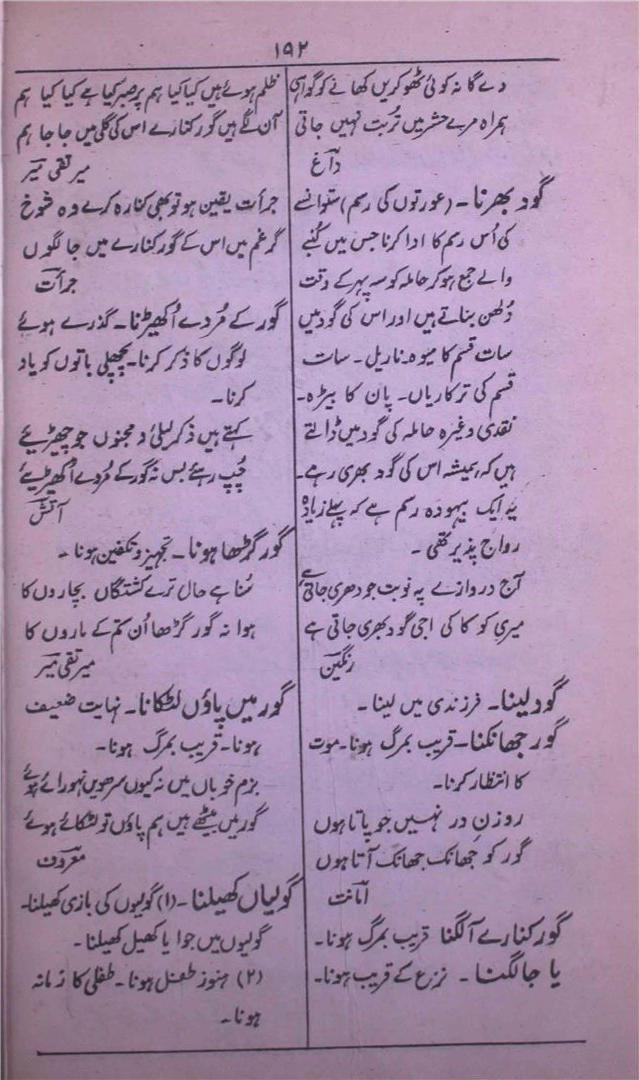 ۱۹۲
دے گا نہ کوئی ٹھوکریں کھانے کو گواہی
ہمراہ مرے حشر میں تُربت نہیں جاتی
داغؔ
گود بھرنا۔ (عورتوں کی رسم) ستوانسے
کی اُس رسم کا ادا کرنا جس میں کُنبے
والے جمع ہوکر حاملہ کو سہ پہر کے وقت
دُلھن بناتے ہیں اور اس کی گود میں
سات قسم کا میوہ۔ ناریل۔ سات
قسم کی ترکاریاں۔ پان کا بیڑہ۔
نقدی وغیرہ حاملہ کی گود میں ڈالتے
ہیں کہ ہمیشہ اس کی گود بھری رہے۔
یہ ایک بیہودہ رسم ہے کہ پہلے زیادہ
رواج پذیر تھی۔
آج دروازے پہ نوبت جو دھری جاتی ہے
میری کوکا کی اجی گود بھری جاتی ہے
رنگینؔ
گود لینا۔ فرزندی میں لینا۔
گور جھانکنا۔ قریب بمرگ ہونا۔ موت
کا انتظار کرنا۔
روزنِ در نہیں جو پاتا ہوں
گور کو جھانک جھانک آتا ہوں
امانتؔ
گور کنارے آلگنا قریب بمرگ ہونا۔
یا جا لگنا۔ نزع کے قریب ہونا۔
ظلم ہوئے ہیں کیا کیا ہم پر صبر کیا ہے کیا کیا ہم
آن لگے ہیں گور کنارے اس کی گلی میں جا جا ہم
میر تقی میرؔ
جرأت یقین ہو تو بھی کنارہ کرے وہ شوخ
گر غم میں اس کے گور کنارے میں جا لگوں
جرأتؔ
گور کے مُردے اُکھیڑنا۔ گذرے ہوئے
لوگوں کا ذکر کرنا۔ پچھلی باتوں کو یاد
کرنا۔
کہتے ہیں ذکر لیلیٰ و مجنوں جو چھیڑیے
چُپ رہئے بس نہ گور کے مُردے اُکھیڑیے
آتشؔ
گور گڑھا ہونا۔ تجہیز و تکفین ہونا۔
سُنا ہے حال ترے کشتگاں بچاروں کا
ہوا نہ گور گڑھا اُن ستم کے ماروں کا
میر تقی میرؔ
گور میں پاؤں لٹکانا۔ نہایت ضعیف
ہونا۔ قریب بمرگ ہونا۔
بزم خوباں میں نہ کیوں سر ہوویں نہوڑائے ہوئے
گور میں بیٹھے ہیں ہم پاؤں تو لٹکائے ہوئے
معروفؔ
گولیاں کھیلنا۔ (۱) گولیوں کی بازی کھیلنا۔
گولیوں میں جوا یا کھیل کھیلنا۔
(۲) ہنوز طفل ہونا۔ طفلی کا زمانہ
ہونا۔